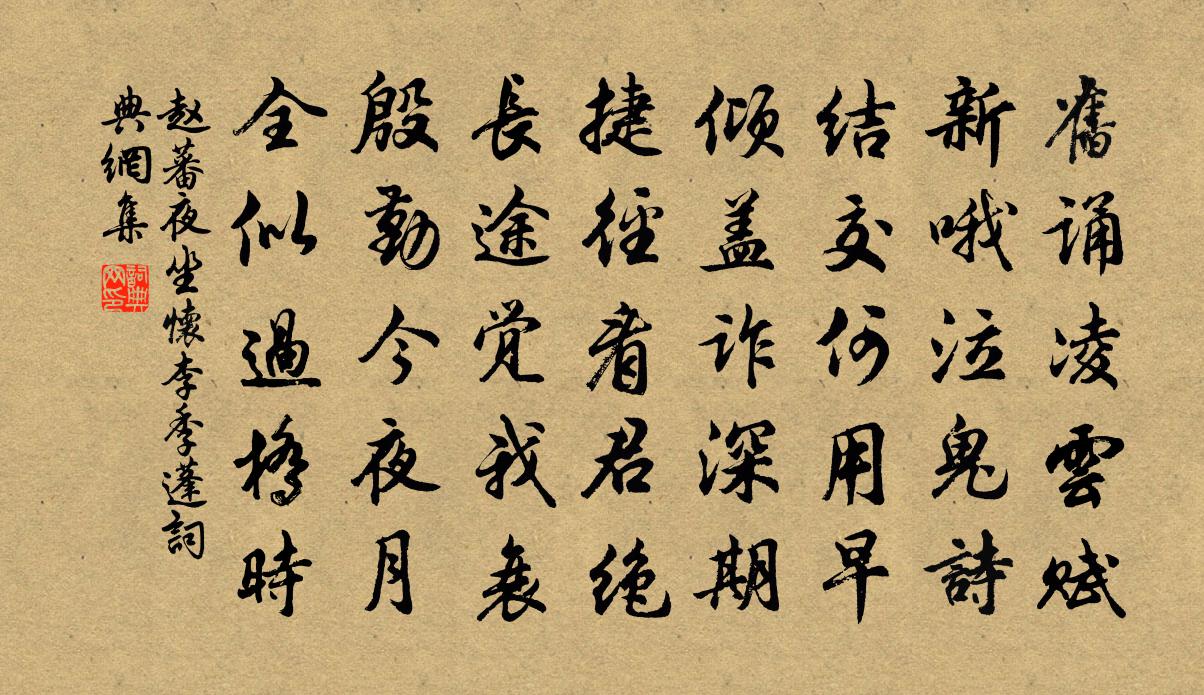 舊誦凌雲賦
新哦泣鬼詩
結交何用早
傾盖詐深期
捷徑看君絶
長途覚我衰
殷勤今夜月
全似過橋時
赵蕃夜坐懷李季蓬詞
典網集
詞典
网印